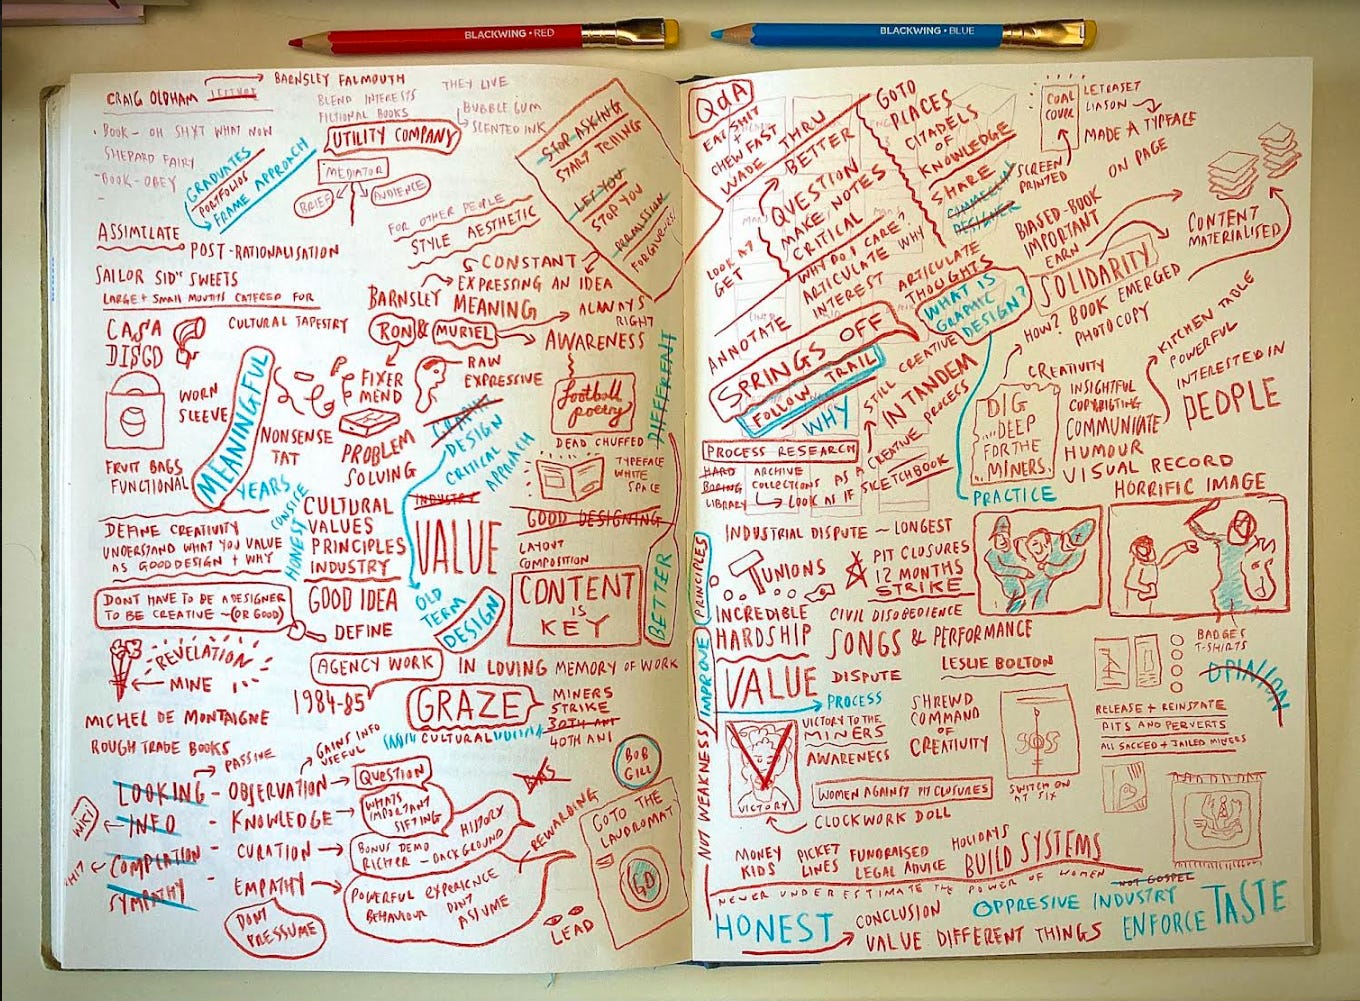 BLACKWING • RED
BLACKWING • BLUE
CRAIG OLDHAM LECTURE
BARNSLEY FALMOUTH
BLEND INTERESTS
FICTIONAL BOOKS
THEY LIVE
BUBBLEGUM
SCENTED INK
BOOK - OH SHYT WHAT NOW
SHEPARD FAIRY
BOOK - OBEY
GRADUATES
PORTFOLIOS
FRAME APPROACH
UTILITY COMPANY
MEDIATOR
BRIEF
AUDIENCE
STOP ASKING
START TCHING
LET YOU
STOP YOU
PERMISSION
ASSIMILATE
POST-RATIONALISATION
FOR OTHER PEOPLE
STYLE AESTHETIC
CONSTANT
EXPRESSING AN IDEA
SAILOR SID" SWEETS
LARGE + SMALL MOUTHS CATERED FOR
BARNSLEY MEANING
ALWAYS
RIGHT
RON & MURIEL
AWARENESS
CASA
DISCO
CULTURAL TAPESTRY
WORN
SLEEVE
MEANINGFUL
FIXER
MEND
RAW
EXPRESSIVE
football
poetry
DEAD CHUFFED
DIFFERENT
NONSENSE
TAT
PROBLEM
SOLVING
DESIGN
CRITICAL
APPROACH
TYPEFACE
WHITE
SPACE
FRUIT BAGS
FUNCTIONAL
YEARS
HONEST
CULTURAL
VALUES
PRINCIPLES
INDUSTRY
INDUSTRY
VALUE
GOOD DESIGNING
LAYOUT
COMPOSITION
CONTENT
IS
KEY
BETTER
DEFINE CREATIVITY
UNDERSTAND WHAT YOU VALUE
AS GOOD DESIGN + WHY
DONT HAVE TO BE A DESIGNER
TO BE CREATIVE ~ (OR GOOD)
GOOD IDEA
DEFINE
OLD
TERM
DESIGN
REVELATION
MINE
AGENCY WORK
IN LOVING MEMORY OF WORK
1984-85
GRAZE
CULTURAL
MINERS
STRIKE
30TH ANI
40TH ANI
MICHEL DE MONTAIGNE
ROUGH TRADE BOOKS
PASSIVE
GAINS INFO
USEFUL
BOB
GILL
LOOKING - OBSERVATION
QUESTION
WIKI
INFO - KNOWLEDGE
WHATS
IMPORTANT
SIFTING
HIT
COMPLATION - CURATION
BONUS DEMO
RICHTER - BACKGROUND
HISTORY
REWARDING
SYMPATHY - EMPATHY
POWERFUL EXPERIENCE
BEHAVIOUR
DONT
ASSUME
DONT
PRESSUME
GOTO THE
LAUDROMAT
LEAD
QdA
EAT SHIT
CHEW FAST
WADE THRU
BETTER
GOTO
PLACES
CITADELS
OF
KNOWLEDGE
SHARE
DESIGNER
COAL
COVER
LETRASET
LIASON
MADE A TYPFACE
SCREEN
PRINTED
ON PAGE
QUESTION
MAKE NOTES
CRITICAL
WHY DO I CARE
ARTICULATE
INTEREST
WHY
ARTICULATE
THOUGHTS
LOOK AT
GET
ANNOTATE
BIASED-BOOK
IMPORTANT
EARN
SOLIDARITY
CONTENT
MATERIALISED
WHAT IS
GRAPHIC
DESIGN?
SPRINGS OFF
FOLLOW TRAIL
WHY
STILL CREATIVE
IN TANDEM
CREATIVE PROCESS
AS A
SKETCHBOOK
HOW? BOOK EMERGED
PHOTOCOPY
KITCHEN TABLE
POWERFUL
INTERESTED IN
PEOPLE
CREATIVITY
INSIGHTFUL
COPYRIGTING
COMMUNICATE
HUMOUR
VISUAL RECORD
DIG
...DEEP
FOR THE
MINERS.
HORRIFIC IMAGE
PRACTICE
PROCESS RESEARCH
HARD
BORING
LIBRARY
ARCHIVE
COLLECTIONS
LOOK AS IF
PRINCIPLES
IMPROVE
NOT WEAKNESS
INDUSTRIAL DISPUTE ~ LONGEST
UNIONS
PIT CLOSURES
12 MONTHS
STRIKE
INCREDIBLE
HARDSHIP
CIVIL DISOBEDIENCE
SONGS & PERFORMANCE
LESLIE BOLTON
BADGES
T-SHIRTS
OPINION
VALUE
DISPUTE
PROCESS
VICTORY TO THE
MINERS
AWARENESS
VICTORY
SHREWD
COMMAND
OF
CREATIVITY
SOS
SWITCH ON
AT SIX
RELEASE + REINSTATE
PITS AND PERVERTS
ALL SACKED + JAILED MINERS
WOMEN AGAINST PIT CLOSURES
CLOCKWORK DOLL
MONEY
KIDS
PICKET
LINES
FUNDRAISED
LEGAL ADVICE
HOLIDAYS
BUILD SYSTEMS
NEVER UNDERESTIMATE THE POWER OF WOMEN
NOT GOSPEL
HONEST
CONCLUSION
VALUE DIFFERENT THINGS
OPPRESIVE INDUSTRY
ENFORCE TASTE